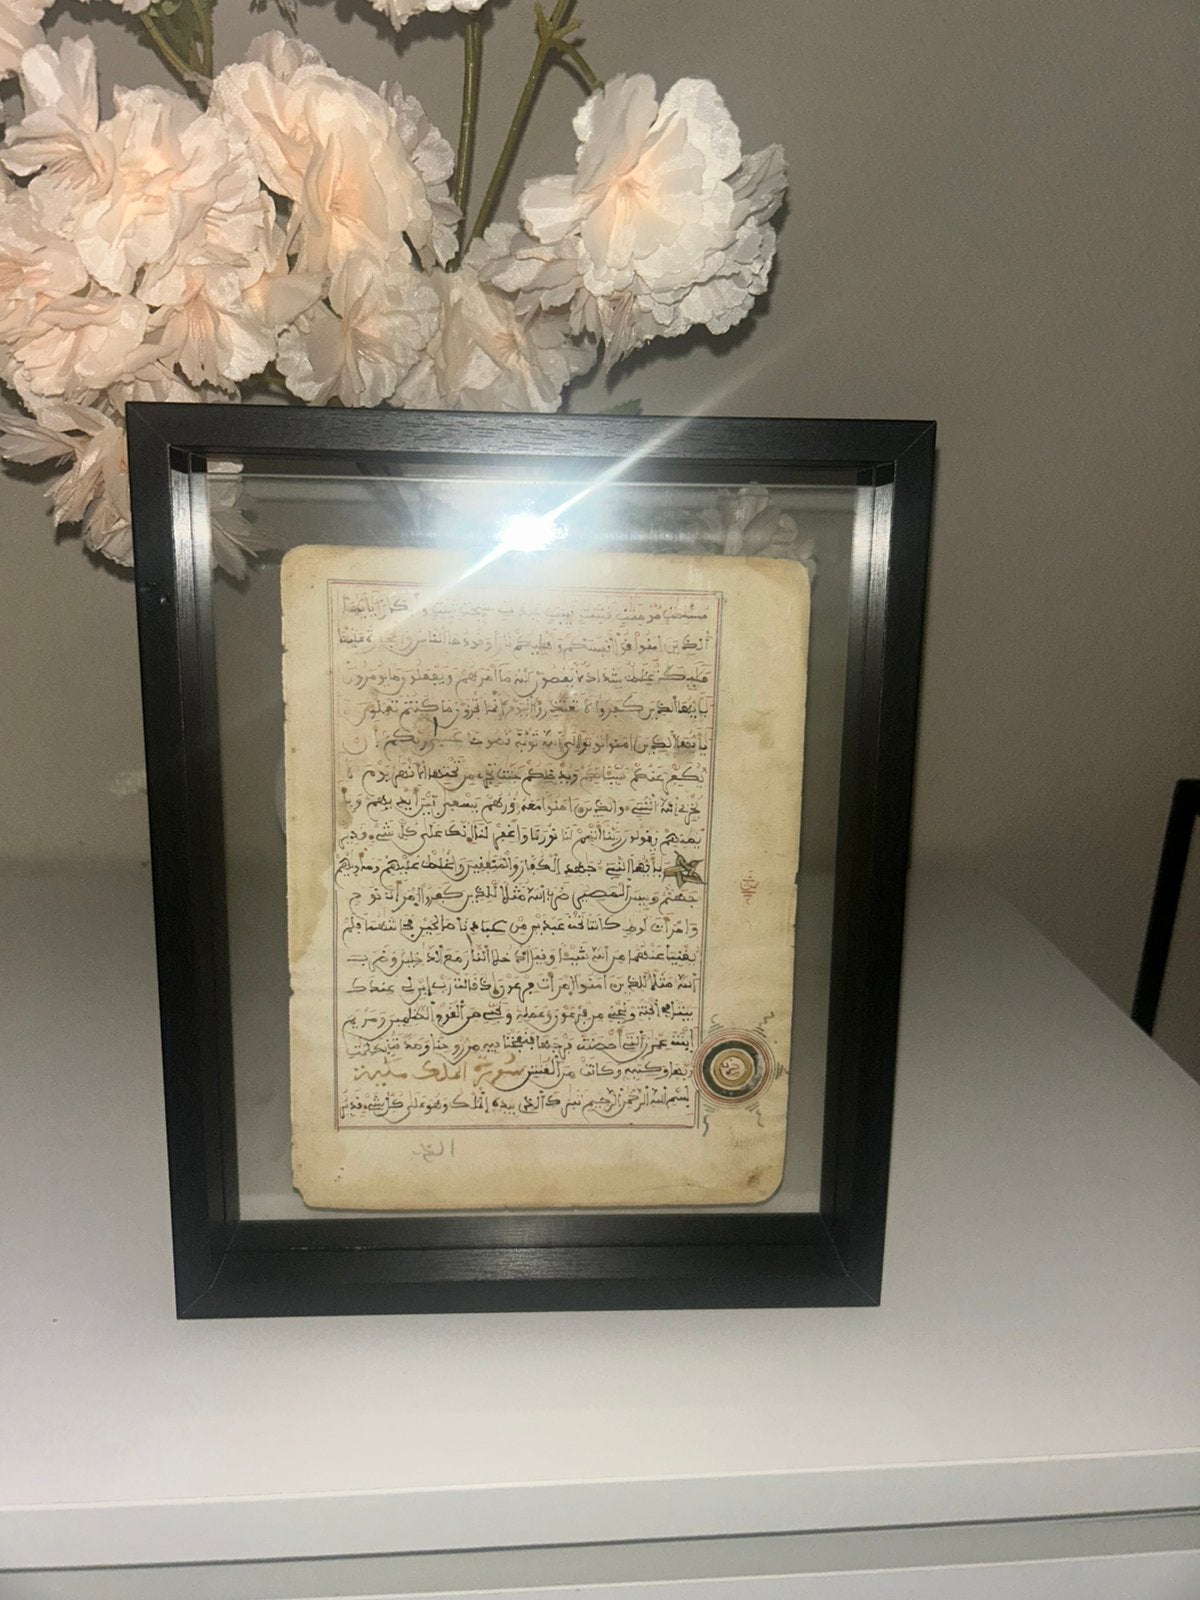 مسلمت مومنت قنتت تئبت عبدت سئحت ثيبت و أبكارا يأيها
الذين امنوا قوا أنفسكم وأهليكم نارا وقودها الناس والحجارة
عليها ملئكة غلاظ شداد لا يعصون الله ما أمرهم ويفعلون ما يومرون
يأيها الذين كفروا لا تعتذروا اليوم إنما تجزون ما كنتم تعملون
يأيها الذين امنوا توبوا إلى الله توبة نصوحا عسى ربكم أن
يكفر عنكم سيئاتكم ويدخلكم جنت تجرى من تحتها الانهر يوم لا
يخزى الله النبىء والذين امنوا معه نورهم يسعى بين أيديهم وبأ
يمنهم يقولون ربنا أتمم لنا نورنا واغفر لنا إنك على كل شىء قدير
يأيها النبىء جهد الكفار والمنفقين واغلظ عليهم ومأويهم
جهنم وبيس المصير ضرب الله مثلا للذين كفروا امرأت نوح
وامرأت لوط كانتا تحت عبدين من عبادنا صلحين فخانتهما فلم
يغنيا عنهما من الله شيئا وقيل ادخلا النار مع الدخلين وضرب
الله مثلا للذين امنوا امرأت فرعون إذ قالت رب ابن لى عندك
بيتا فى الجنة ونجنى من فرعون وعمله ونجنى من القوم الظلمين ومريم
ابنت عمرن التى أحصنت فرجها فنفخنا فيه من روحنا وصدقت بكلمت
ربها وكتبه وكانت من القنتين سورة الملك
بسم الله الرحمن الرحيم تبرك الذى بيده الملك وهو على كل شىء قدير
الذى